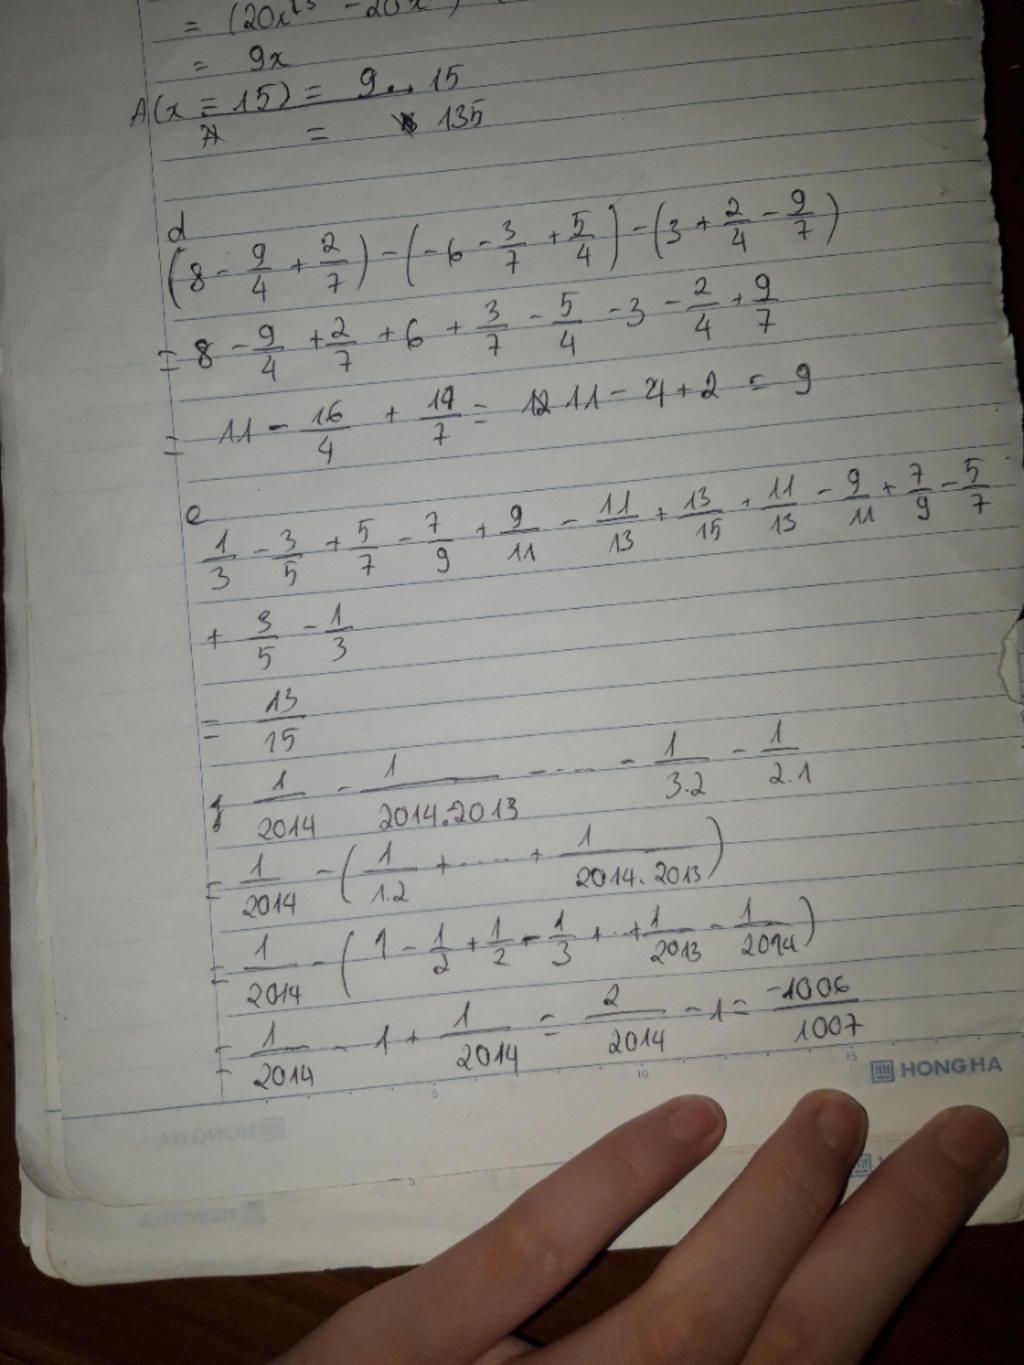 = (20x³ - 20x
= 9x
A(x = 15) = 9 . 15
= 135
d
(8 - 9/4 + 2/7) - (-6 - 3/7 + 5/4) - (3 + 2/4 - 9/7)
= 8 - 9/4 + 2/7 + 6 + 3/7 - 5/4 - 3 - 2/4 + 9/7
= 11 - 16/4 + 14/7 = 11 - 4 + 2 = 9
e
1/3 - 3/5 + 5/7 - 7/9 + 9/11 - 11/13 + 13/15 + 11/13 - 9/11 + 7/9 - 5/7
+ 3/5 - 1/3
= 13/15
g 1/2014 - 1/2014.2013 - .... - 1/3.2 - 1/2.1
= 1/2014 - (1/1.2 + ..... + 1/2014.2013)
= 1/2014 - (1 - 1/2 + 1/2 - 1/3 + .. + 1/2013 - 1/2014)
= 1/2014 - 1 + 1/2014 = 2/2014 - 1 = -1006/1007
5 10 15
HONG HA